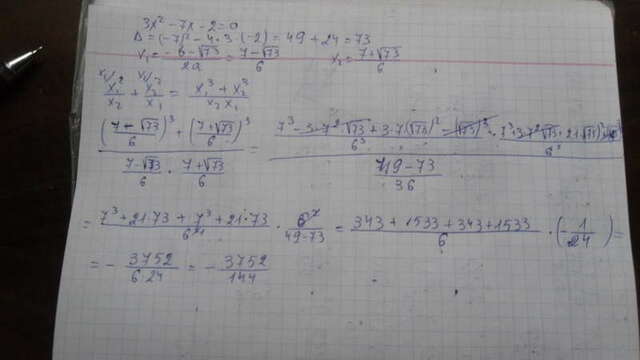 3x² - 7x - 2 = 0
D = (-7)² - 4·3·(-2) = 49 + 24 = 73
x₁ = (-b - √73)/2a = (7 - √73)/6 x₂ = (7 + √73)/6
x₁²/x₂ + x₂²/x₁ = (x₁³ + x₂³)/(x₂ x₁)
(((7 - √73)/6)³ + ((7 + √73)/6)³)/((7 - √73)/6 · (7 + √73)/6) = (7³ - 3·7²·√73 + 3·7(√73)² - (√73)³
6³
(49 - 73)/36
= (7³ + 21·73 + 7³ + 21·73)/6 · 6²/(49 - 73) = (343 + 1533 + 343 + 1533)/6 · (-1/24) =
= - 3752/(6·24) = - 3752/144